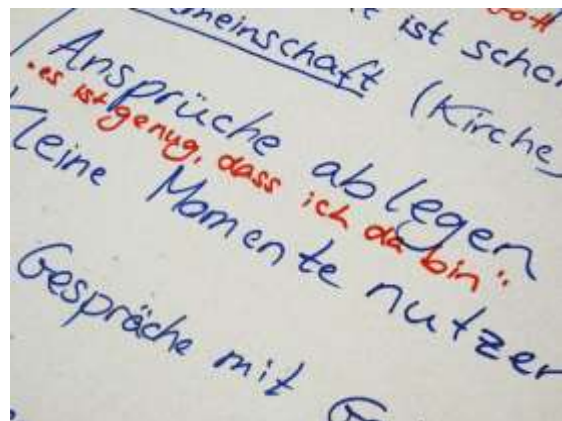 ist schon
Gemeinschaft (Kirche)
Ansprüche ablegen
"es ist genug, dass ich da bin"
Kleine Momente nutzen
Gespräche mit